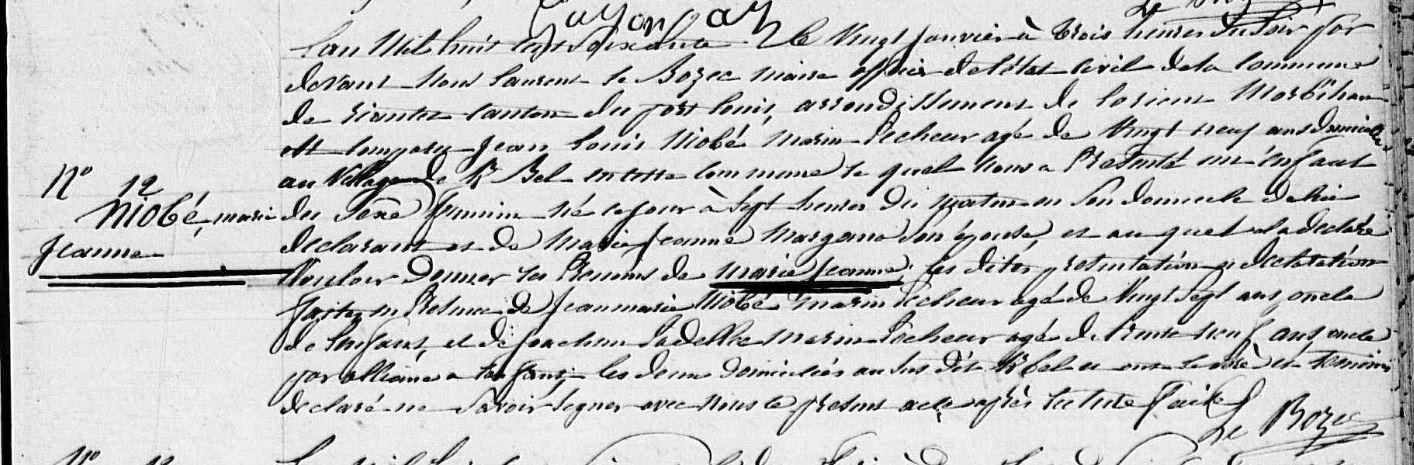 L'an Mil huit cent soixante Le Vingt Janvier à trois heures du soir par
devant Nous Laurent Le Bozec Maire officier de l'état civil de la commune
de riantec Canton du port louis, arrondissement de lorient Morbihan
est comparu Jean louis Niobé Marin Pêcheur agé de Vingt neuf ans domicilié
au Village de Kr Bel en cette Commune le quel Nous a Presenté un Enfant
N° 12
Niobé, marie
Jeanne
du Sexe feminin né ce jour à Sept heures du matin en Son domicile de lui
declarant et de Marie Jeanne Son épouse, et au quel il a declaré
Vouloir donner les Prenoms de Marie Jeanne. les dites presentation et declaration
faites en Presence de Jean marie Niobé marin Pêcheur agé de Vingt Sept ans, oncle
de l'enfant, et de joachim marin Pêcheur agé de trente neuf ans, oncle
par alliance a l'enfant, les deux domiciliés au Sus dit Kr bel et ont le père et temoins
declaré ne Savoir Signer avec Nous le present acte après lecture faite
Le Bozec